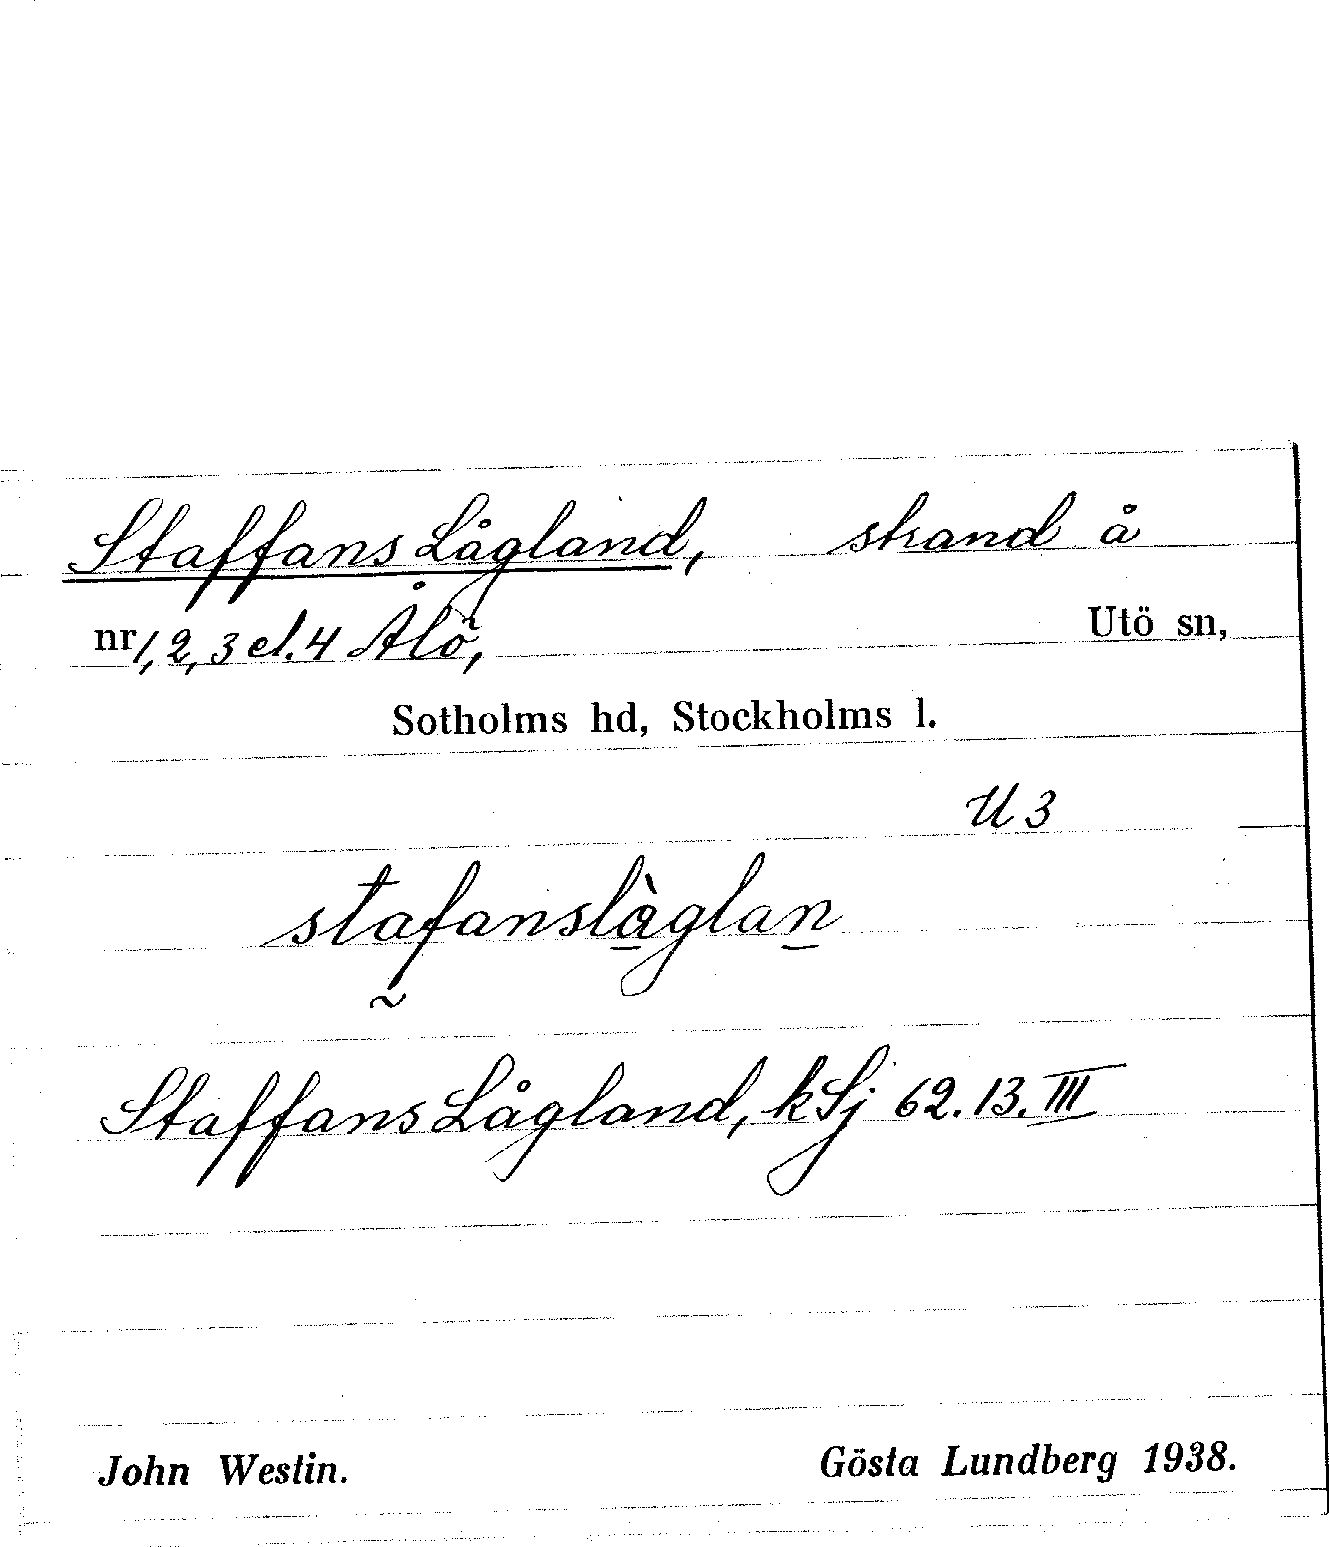 Staffans Lågland, strand å
nr 1, 2, 3 el. 4 Ålö, Utö sn,
Sotholms hd, Stockholms l.
U 3
stafanslàglan
Staffans Lågland, kSj 62.13.III
John Westin. Gösta Lundberg 1938.